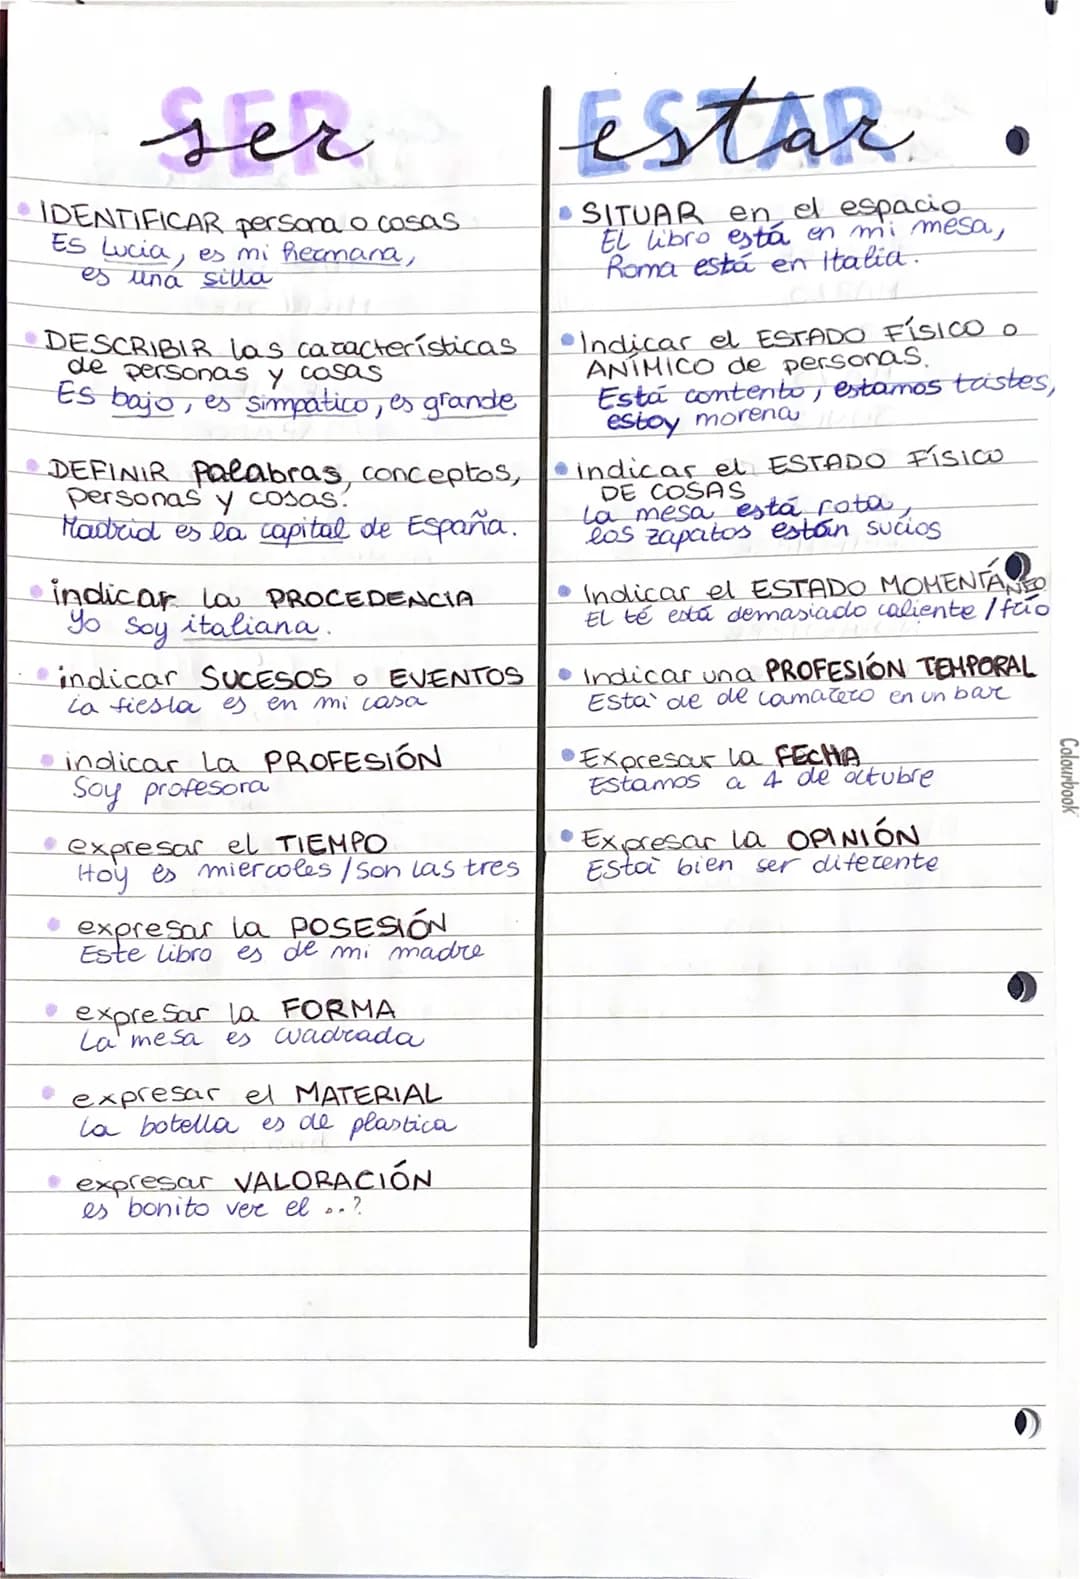 SER
ser
• IDENTIFICAR persona o cosas
Es Lucia, es mi hermana,
es una silla
• DESCRIBIR las características
de personas y cosas
Es bajo, es simpatico, es grande
• DEFINIR palabras, conceptos,
personas y cosas.
Madrid es la capital de España.
• indicar la PROCEDENCIA
Yo soy italiana.
• indicar SUCESOS o EVENTOS
La fiesta es en mi casa
• indicar la PROFESIÓN
Soy profesora
• expresar el TIEMPO
Hoy es miercoles / Son las tres
• expresar la POSESIÓN
Este libro es de mi madre
• expresar la FORMA
La mesa es cuadrada
• expresar el MATERIAL
La botella es de plastica
• expresar VALORACIÓN
es bonito ver el ..?
ESTAR
estar
• SITUAR en el espacio
El libro está en mi mesa,
Roma está en Italia.
• Indicar el ESTADO FÍSICO o
ANÍMICO de personas.
Está contento, estamos tristes,
estoy morena
• indicar el ESTADO FÍSICO
DE COSAS
La mesa está rota,
los zapatos están sucios
• Indicar el ESTADO MOMENTÁNEO
El té está demasiado caliente / frío
• Indicar una PROFESIÓN TEMPORAL
Està de de camarero en un bar
• Expresar la FECHA
Estamos a 4 de octubre
• Expresar la OPINIÓN
Està bien ser diferente
Colourbook